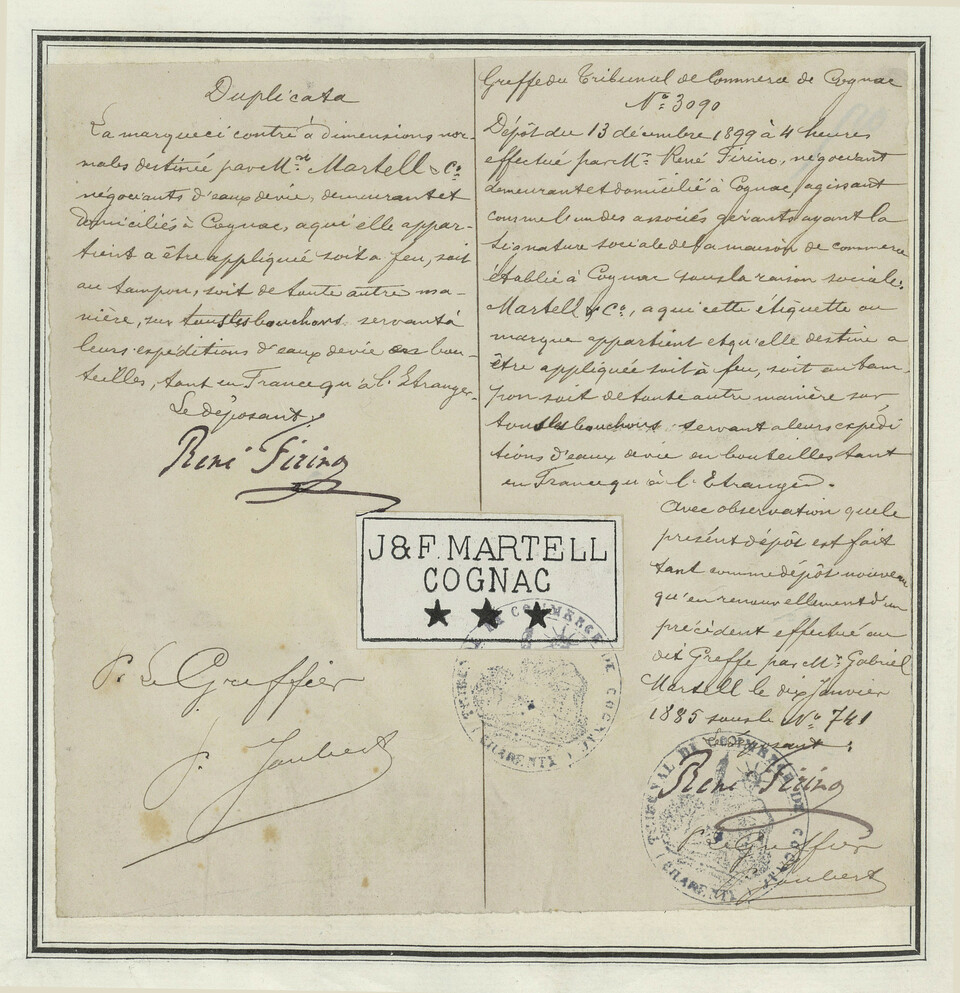 Duplicata
La marque ci contre à dimensions nor-
males destinée par Mrs Martell & Co
négociants d'eaux de vie, demeurant et
domiciliés à Cognac, à qui elle appar-
tient à être appliquée soit à feu, soit
au tampon, soit de toute autre ma-
nière, sur tous les bouchons servant à
leurs expéditions d'eaux de vie en bou-
teilles, tant en France qu'à l'Etranger.
Le déposant:
René Firino
P. Le Greffier
P. Joubert
Greffe du Tribunal de Commerce de Cognac
No 3090
Dépôt du 13 décembre 1899 à 4 heures
effectué par Mr René Firino, négociant
demeurant et domicilié à Cognac, agissant
comme l'un des associés gérants ayant la
signature sociale de la maison de commerce
établie à Cognac sous la raison sociale:
Martell & Co, à qui cette étiquette ou
marque appartient et qu'elle destine à
être appliquée soit à feu, soit au tam-
pon soit de toute autre manière sur
tous les bouchons servant à leurs expédi
tions d'eaux de vie en bouteilles tant
en France qu'à l'Etranger.
Avec observation que le
présent dépôt est fait
tant comme dépôt nouveau
qu'en renouvellement d'un
précédent effectué au
dit Greffe par Mr Gabriel
Martell le dix Janvier
1885 sous le No 741
Le déposant:
René Firino
P. Le Greffier
Joubert
J & F. MARTELL
COGNAC
TRIBUNAL DE COMMERCE DE COGNAC
(CHARENTE)
TRIBUNAL DE COMMERCE DE COGNAC
(CHARENTE)